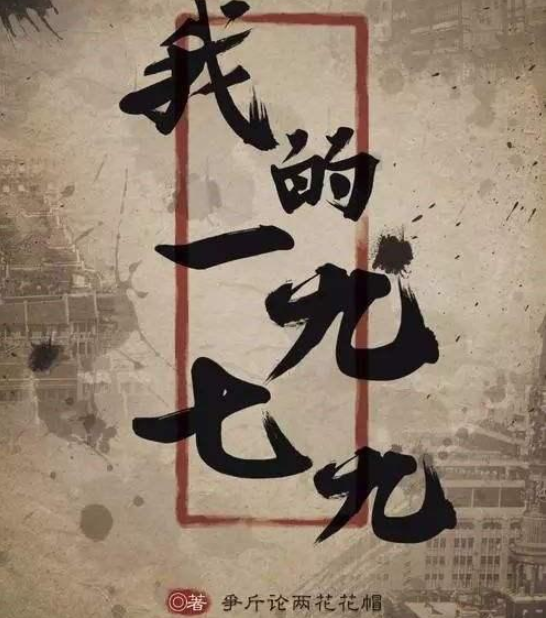 我的
一九
七九
◎著 争斤论两花花帽